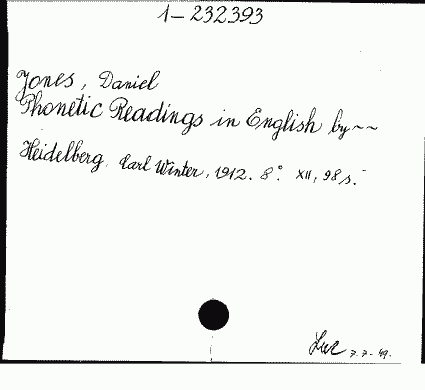 1-232393
Jones, Daniel
Phonetic Readings in English by~~
Heidelberg, Carl Winter, 1912. 8°. XII, 98 s.
7.7-49.